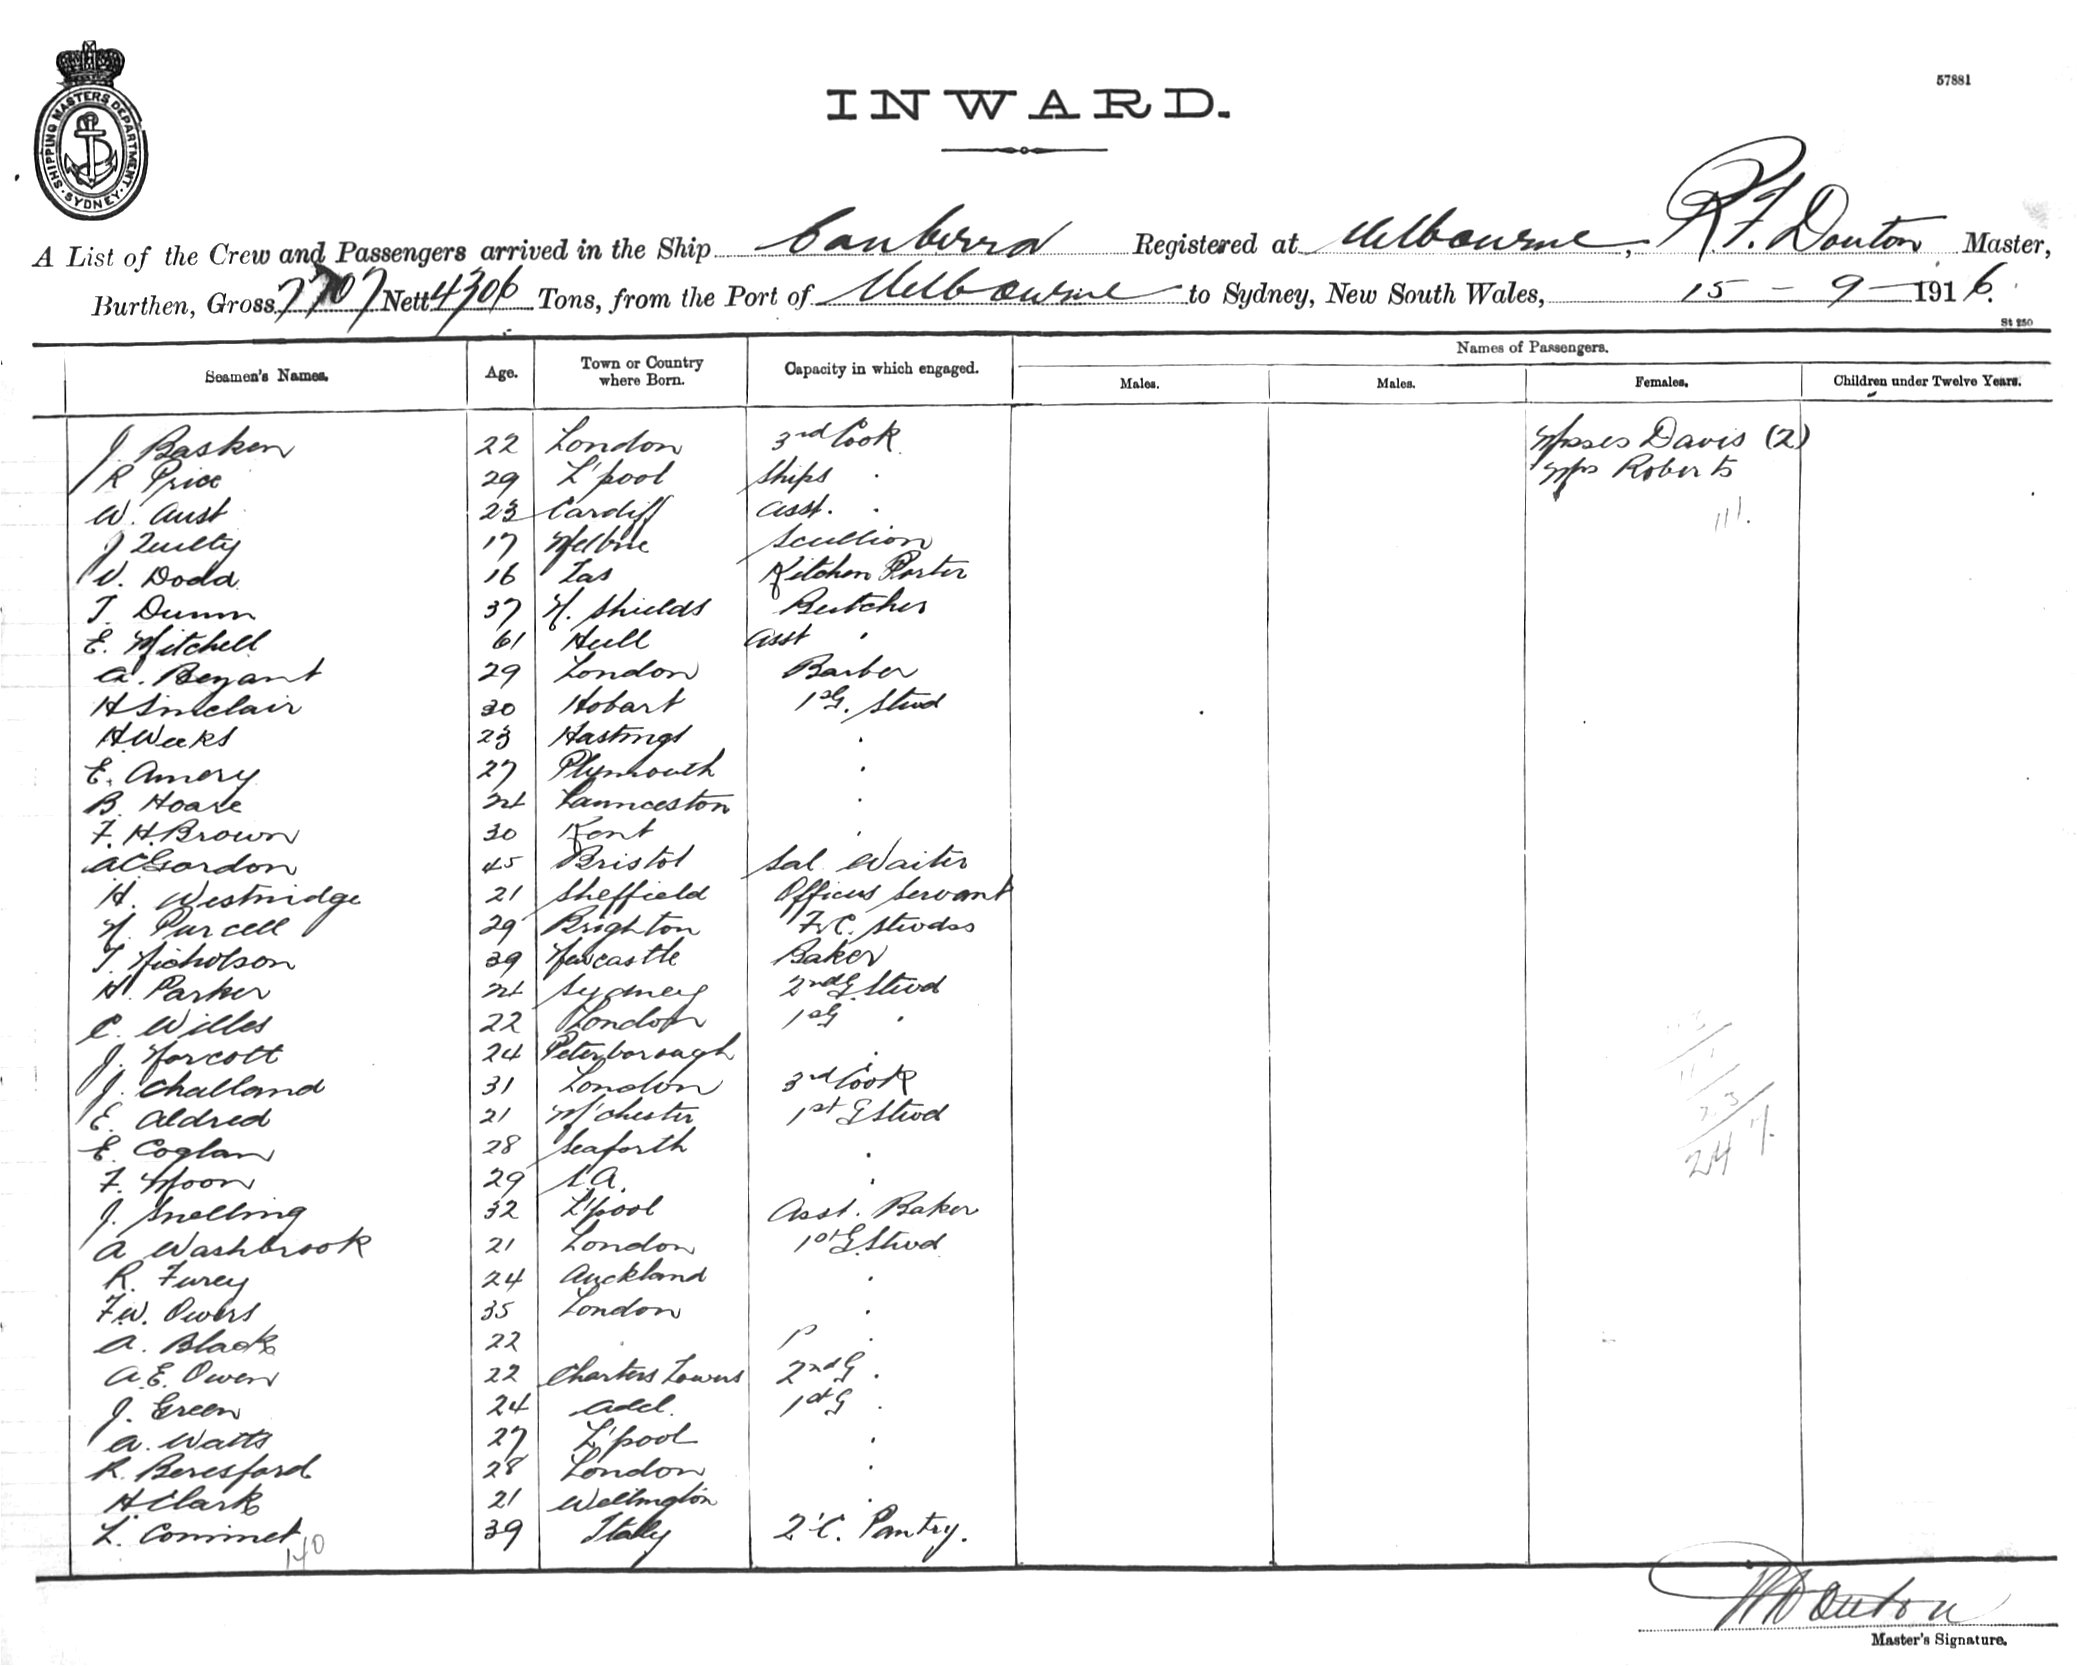 SHIPPING MASTERS DEPARTMENT. SYDNEY
57881
INWARD.
A List of the Crew and Passengers arrived in the Ship Canberra Registered at Melbourne, R. F. Douton Master,
Burthen, Gross 7707 Nett 4306 Tons, from the Port of Melbourne to Sydney, New South Wales, 15 - 9 - 1916.
St 250
Names of Passengers.
Seamen's Names. Age. Town or Country where Born. Capacity in which engaged. Males. Males. Females. Children under Twelve Years.
J. Basken 22 London 3rd Cook Misses Davis (2)
R Price 29 L'pool Ships . Mrs Roberts
W. Aust 23 Cardiff Asst. . 111.
J Quilty 17 Melbne Scullion
W. Dodd 16 Tas Kitchen Porter
T. Dunn 37 N. Shields Butcher
E. Mitchell 61 Hull Asst .
A. Bryant 29 London Barber
H Sinclair 30 Hobart 1st G. Stwd
H. Weeks 23 Hastings .
E. Amery 27 Plymouth .
B. Hoare 24 Launceston .
F. H. Brown 30 Kent .
A C Gordon 45 Bristol Sal Waiter
H. Westridge 21 Sheffield Officers Servant
N. Purcell 29 Brighton F.C. Stwdss
T. Nicholson 39 Newcastle Baker
H. Parker 24 Sydney 2nd G. Stwd
C. Willes 22 London 1st G .
J. Norcott 24 Peterborough .
J. Challand 31 London 3rd Cook
E. Aldred 21 M'chester 1st G Stwd
E. Coglan 28 Seaforth .
F. Moon 29 S.A. .
J. Snelling 32 L'pool Asst. Baker
A Washbrook 21 London 1st G. Stwd
R. Furey 24 Auckland .
F.W. Owers 35 London .
A. Black 22 . .
A.E. Owen 22 Charters Towers 2nd G .
J. Green 24 Adel. 1st G .
A. Watts 27 L'pool .
R. Beresford 28 London .
H Clark 21 Wellington .
L. Comimet 39 Italy 2'C. Pantry.
140
R F Douton
Master's Signature.